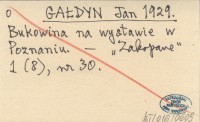 o GAŁDYN Jan 1929.
Bukowina na wystawie w
Poznaniu. — "Zakopane"
1 (8), nr 30.